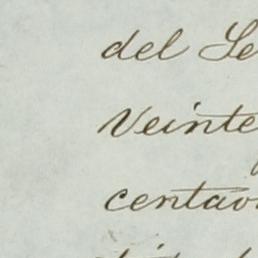 del Se
Veinte
centavo